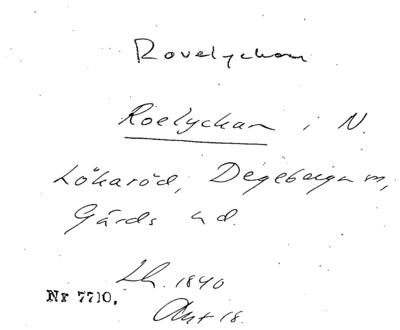 Rovelyckan
Roelyckan i N.
Lökaröd, Degeberga sn,
Gärds hd.
Lh. 1840
Nr 7710.
Akt 18.